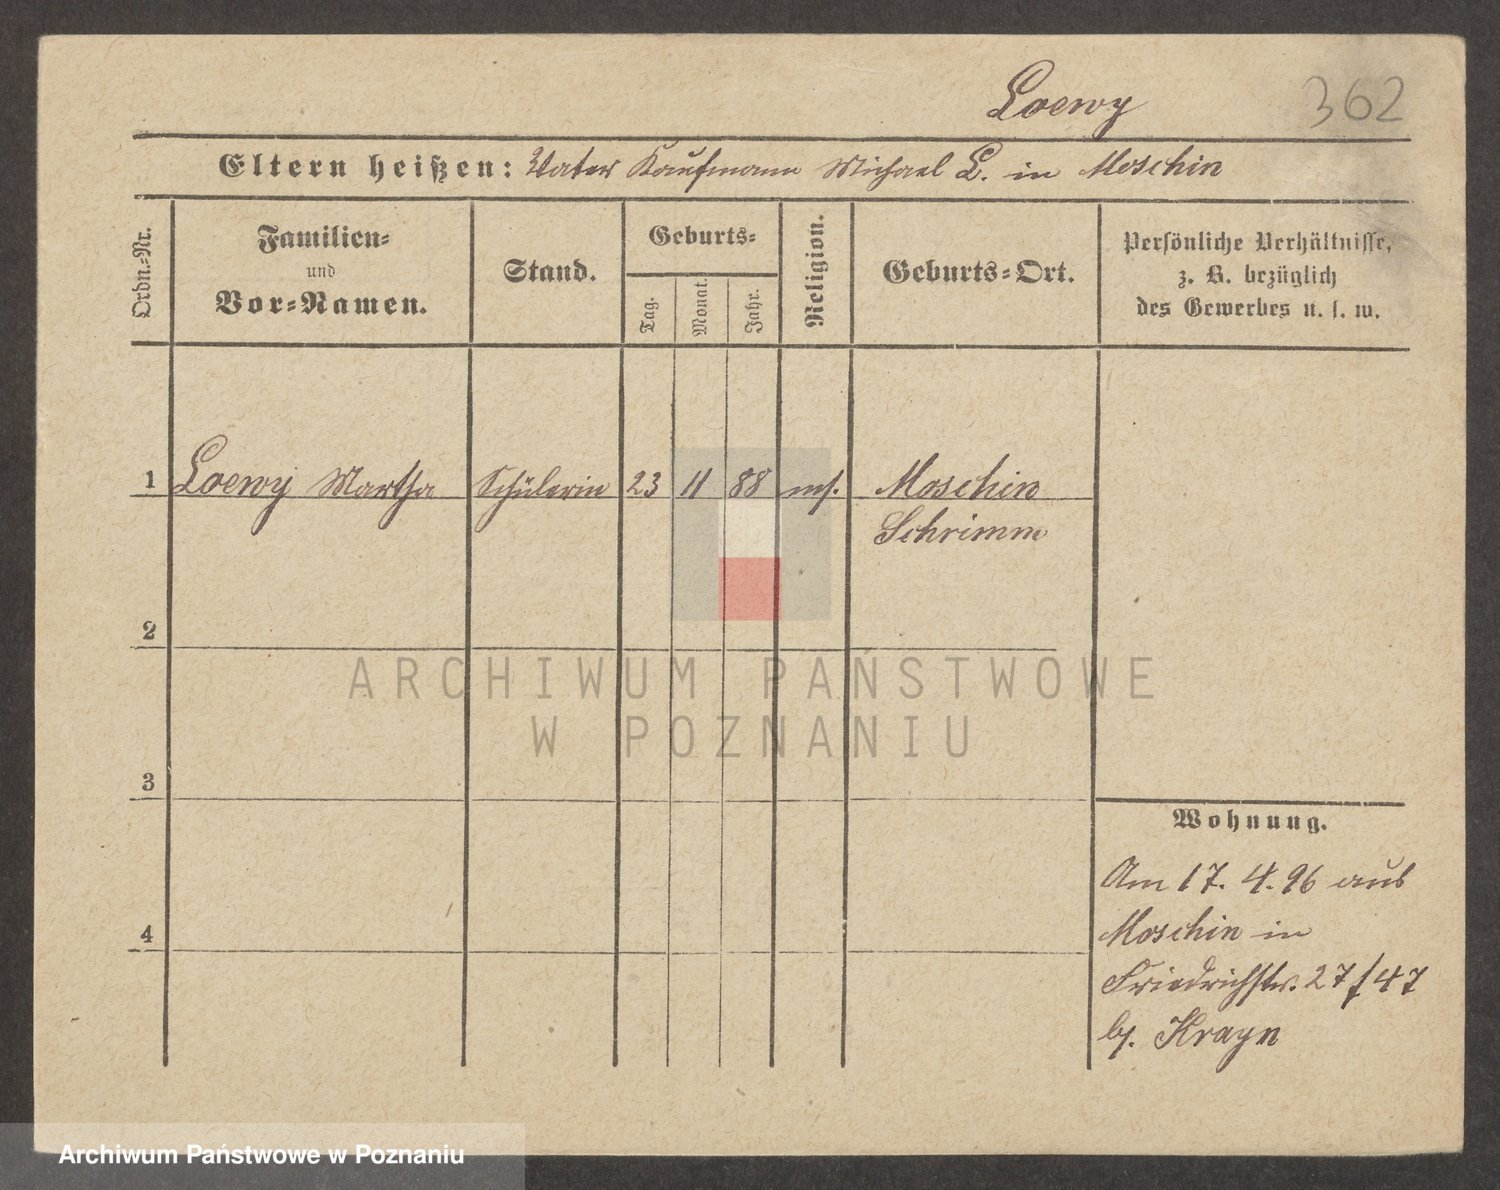 Loewy 362
Eltern heißen: Vater Kaufmann Michael L. in Moschin
Ordn.-Nr.
Familien-
und
Vor-Namen.
Stand.
Geburts-
Tag.
Monat.
Jahr.
Religion.
Geburts-Ort.
Persönliche Verhältnisse,
z. B. bezüglich
des Gewerbes u. s. w.
1 Loewy Martha Schülerin 23 11 88 ms. Moschin
Schrimm
2
ARCHIWUM PAŃSTWOWE
W POZNANIU
3
Wohnung.
Am 17. 4. 96 aus
Moschin in
4
Friedrichstr. 27/47
b/. Krayn
Archiwum Państwowe w Poznaniu